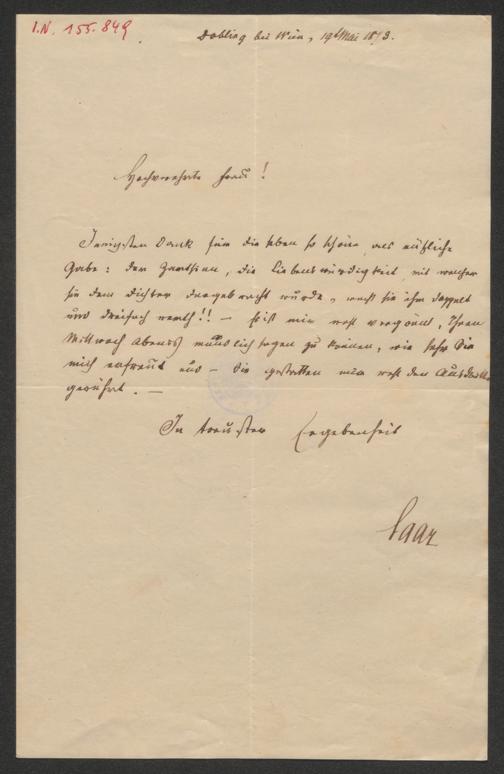 I.N. 155.849
Döbling bei Wien, 19t Mai 1873.
Hochverehrte Frau!
Innigsten Dank für die eben so schöne als nützliche
Gabe: der Zartsinn, die Liebenswürdigkeit mit welcher
sie dem Dichter dargebracht wurde, macht sie ihm doppelt
und dreifach werth!! — Es ist mir wohl vergönnt, Ihnen
Mittwoch Abends mündlich sagen zu können, wie sehr Sie
mich erfreut und — Sie gestatten mir wohl den Ausdruck
gerührt. —
In treuster Ergebenheit
Saar